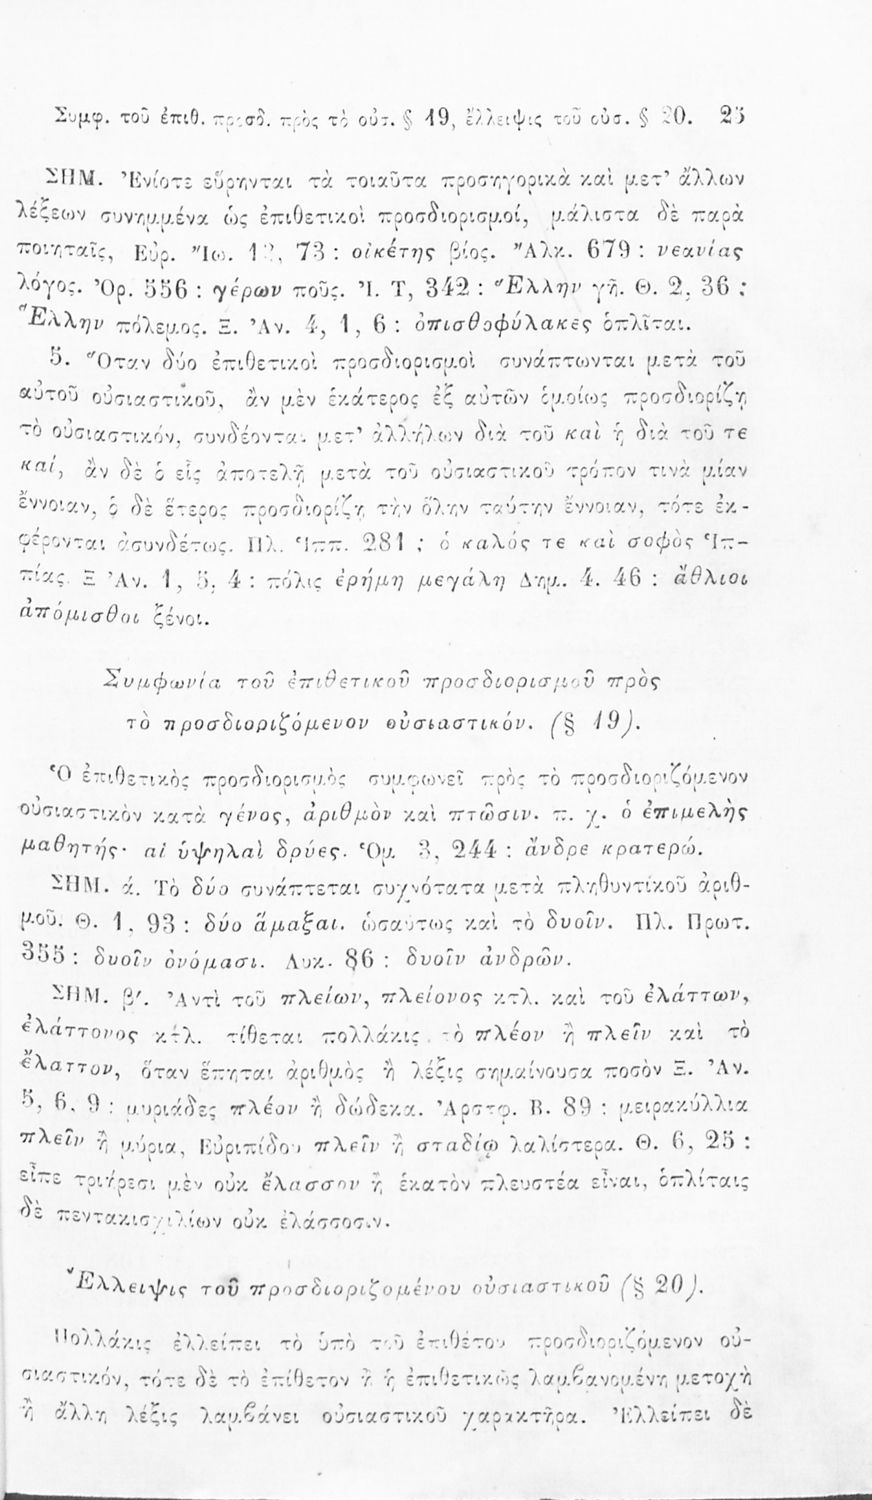 Συμφ. τοῦ ἐπιθ. προσδ. πρὸς τὸ οὐσ. § 19, ἔλλειψις τοῦ οὐσ. § 20. 25
ΣΗΜ. Ἐνίοτε εὕρηνται τὰ τοιαῦτα προσηγορικὰ καὶ μετ' ἄλλων
λέξεων συνημμένα ὡς ἐπιθετικοὶ προσδιορισμοί, μάλιστα δὲ παρὰ
ποιηταῖς, Εὐρ. Ἴω. 1 , 73 : οἰκέτης βίος. Ἄλκ. 679 : νεανίας
λόγος. Ὀρ. 556 : γέρων ποῦς. Ἰ. Τ, 342 : Ἕλλην γῆ. Θ. 2, 36 :
Ἕλλην πόλεμος. Ξ. Ἀν. 4, 1, 6 : ὀπισθοφύλακες ὁπλῖται.
5. Ὅταν δύο ἐπιθετικοὶ προσδιορισμοὶ συνάπτωνται μετὰ τοῦ
αὐτοῦ οὐσιαστικοῦ, ἂν μὲν ἑκάτερος ἐξ αὐτῶν ὁμοίως προσδιορίζῃ
τὸ οὐσιαστικόν, συνδέονται μετ' ἀλλήλων διὰ τοῦ καὶ ἢ διὰ τοῦ τε
καί, ἂν δὲ ὁ εἷς ἀποτελῇ μετὰ τοῦ οὐσιαστικοῦ τρόπον τινὰ μίαν
ἔννοιαν, ὁ δὲ ἕτερος προσδιορίζῃ τὴν ὅλην ταύτην ἔννοιαν, τότε ἐκ-
φέρονται ἀσυνδέτως. Πλ. Ἱππ. 281 : ὁ καλός τε καὶ σοφὸς Ἱπ-
πίας. Ξ Ἀν. 1, 5, 4 : πόλις ἐρήμη μεγάλη Δημ. 4. 46 : ἄθλιοι
ἀπόμισθοι ξένοι.
Συμφωνία τοῦ ἐπιθετικοῦ προσδιορισμοῦ πρὸς
τὸ προσδιοριζόμενον οὐσιαστικόν. (§ 19).
Ὁ ἐπιθετικὸς προσδιορισμὸς συμφωνεῖ πρὸς τὸ προσδιοριζόμενον
οὐσιαστικὸν κατὰ γένος, ἀριθμὸν καὶ πτῶσιν. π. χ. ὁ ἐπιμελὴς
μαθητής· αἱ ὑψηλαὶ δρύες. Ὁμ 3, 244 : ἄνδρε κρατερώ.
ΣΗΜ. ά. Τὸ δύο συνάπτεται συχνότατα μετὰ πληθυντικοῦ ἀριθ-
μοῦ. Θ. 1, 93 : δύο ἅμαξαι. ὡσαύτως καὶ τὸ δυοῖν. Πλ. Πρωτ.
355 : δυοῖν ὀνόμασι. Λυκ. 86 : δυοῖν ἀνδρῶν.
ΣΗΜ. β'. Ἀντὶ τοῦ πλείων, πλείονος κτλ. καὶ τοῦ ἐλάττων,
ἐλάττονος κτλ. τίθεται πολλάκις τὸ πλέον ἢ πλεῖν καὶ τὸ
ἔλαττον, ὅταν ἕπηται ἀριθμὸς ἢ λέξις σημαίνουσα ποσὸν Ξ. Ἀν.
5, 6, 9 : μυριάδες πλέον ἢ δώδεκα. Ἀρστφ. Β. 89 : μειρακύλλια
πλεῖν ἢ μύρια, Εὐριπίδου πλεῖν ἢ σταδίῳ λαλίστερα. Θ. 6, 25 :
εἶπε τριήρεσι μὲν οὐκ ἔλασσον ἢ ἑκατὸν πλευστέα εἶναι, ὁπλίταις
δὲ πεντακισχιλίων οὐκ ἐλάσσοσιν.
Ἔλλειψις τοῦ προσδιοριζομένου οὐσιαστικοῦ (§ 20).
Πολλάκις ἐλλείπει τὸ ὑπὸ τοῦ ἐπιθέτου προσδιοριζόμενον οὐ-
σιαστικόν, τότε δὲ τὸ ἐπίθετον ἢ ἡ ἐπιθετικῶς λαμβανομένη μετοχὴ
ἢ ἄλλη λέξις λαμβάνει οὐσιαστικοῦ χαρακτῆρα. Ἐλλείπει δὲ